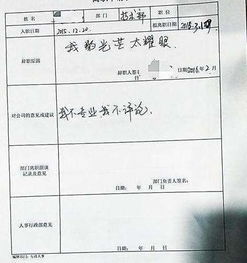 姓名 部门 技术部 职位
入职日期 2015.12.20. 拟离职日期
辞职原因 我的光芒太耀眼
辞职人签 日期2016年2月
对公司的意见或建议 我不专业我不评论.
部门离职面谈记录及意见
部门负责人签名:
日期: 年 月 日
人事行政部意见
日期: 年 月 日